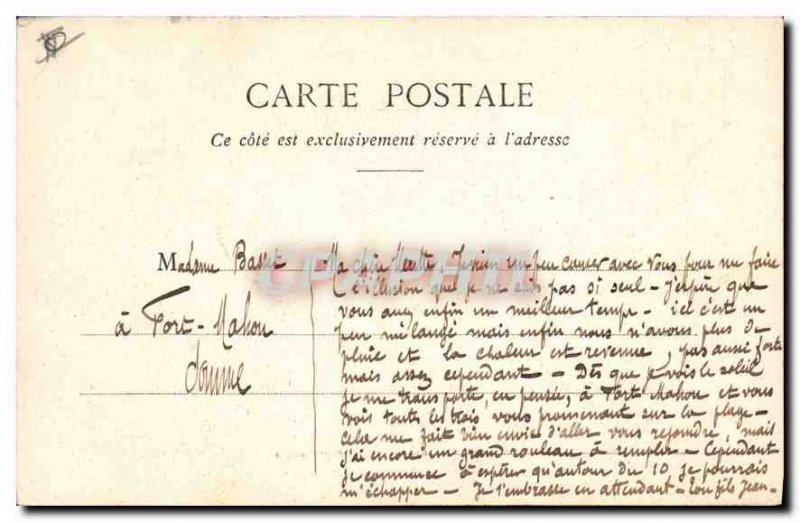 CARTE POSTALE
Ce côté est exclusivement réservé à l'adresse
Madame Basset
à Fort-Mahon
Somme
Ma chère Je viens un peu causer avec vous pour me faire
l'illusion que je ne suis pas si seul - J'espère que
vous avez enfin un meilleur temps - ici c'est un
peu mélangé mais enfin nous n'avons plus de
pluie et la chaleur est revenue, pas aussi forte
mais assez cependant - Dès que je vois le soleil
je me transporte, en pensée, à Fort Mahon et vous
vois toutes les trois vous promenant sur la plage -
cela me fait bien envie d'aller vous rejoindre, mais
j'ai encore un grand rouleau à remplir - Cependant
je commence à espérer qu'autour du 10 je pourrais
m'échapper - Je t'embrasse en attendant - ton fils Jean -